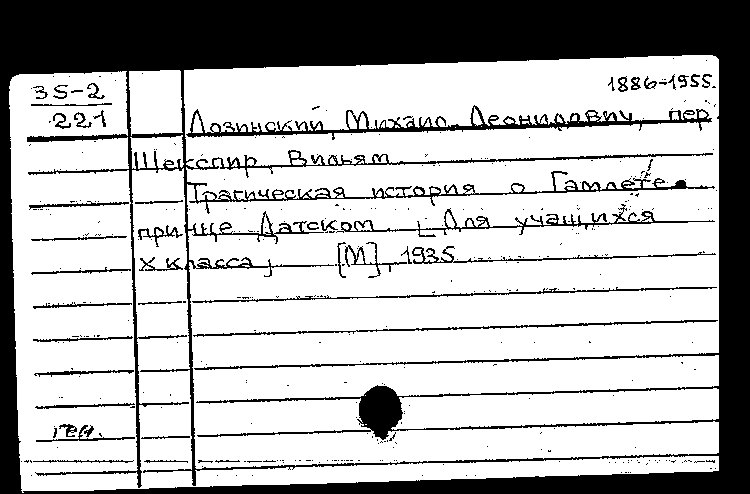 35-2
221
1886-1955.
Лозинский, Михаил Леонидович, пер.
Шекспир, Вильям.
Трагическая история о Гамлете
принце Датском. [Для учащихся
X класса] [М], 1935
ген.